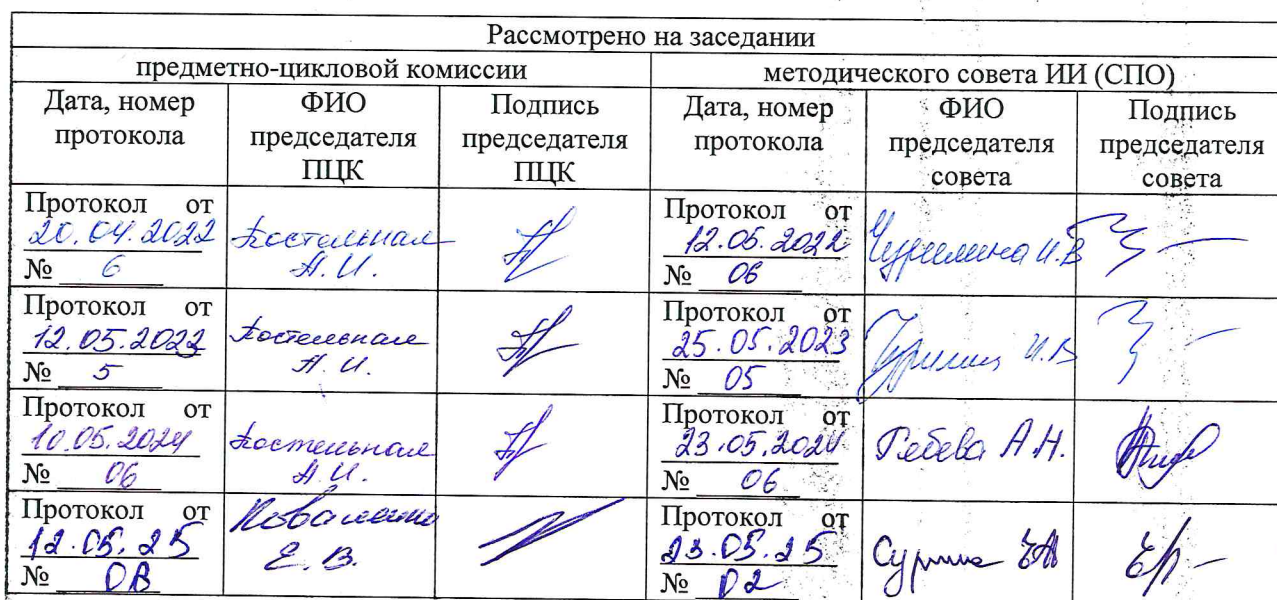 Рассмотрено на заседании
предметно-цикловой комиссии
методического совета ИИ (СПО)
Дата, номер протокола
ФИО председателя ПЦК
Подпись председателя ПЦК
Дата, номер протокола
ФИО председателя совета
Подпись председателя совета
Протокол от
20.04.2022
№ 6
Костельная
А.И.
Протокол от
12.05.2022
№ 06
Чурилина И.В
Протокол от
12.05.2023
№ 5
Костельная
А.И.
Протокол от
25.05.2023
№ 05
И.В
Протокол от
10.05.2024
№ 06
Костельная
А.И.
Протокол от
23.05.2024
№ 06
А.Н.
Протокол от
12.05.25
№
Е.В.
Протокол от
23.05.25
№ 02